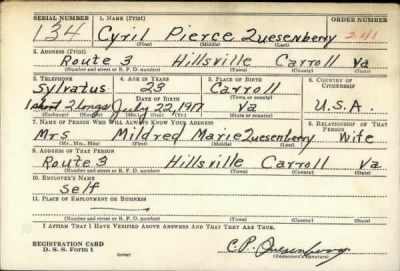 SERIAL NUMBER 1. NAME (Print) ORDER NUMBER
134 Cyril Pierce Quesenberry 241
(First) (Middle) (Last)
2. ADDRESS (Print)
Route 3 Hillsville Carroll Va
(Number and street or R. F. D. number) (Town) (County) (State)
3. TELEPHONE 4. AGE IN YEARS 5. PLACE OF BIRTH 6. COUNTRY OF CITIZENSHIP
Sylvatus 23 Carroll
DATE OF BIRTH (Town or county)
1 short 2 longs July 22, 1917 Va U.S.A.
(Exchange) (Number) (Mo.) (Day) (Yr.) (State or country)
7. NAME OF PERSON WHO WILL ALWAYS KNOW YOUR ADDRESS 8. RELATIONSHIP OF THAT PERSON
Mrs Mildred Marie Quesenberry Wife
(Mr., Mrs., Miss) (First) (Middle) (Last)
9. ADDRESS OF THAT PERSON
Route 3 Hillsville Carroll Va
(Number and street or R. F. D. number) (Town) (County) (State)
10. EMPLOYER'S NAME
Self
11. PLACE OF EMPLOYMENT OR BUSINESS
(Number and street or R. F. D. number) (Town) (County) (State)
I AFFIRM THAT I HAVE VERIFIED ABOVE ANSWERS AND THAT THEY ARE TRUE.
REGISTRATION CARD
D. S. S. Form 1 C.P. Quesenberry
(over) (Registrant's signature)